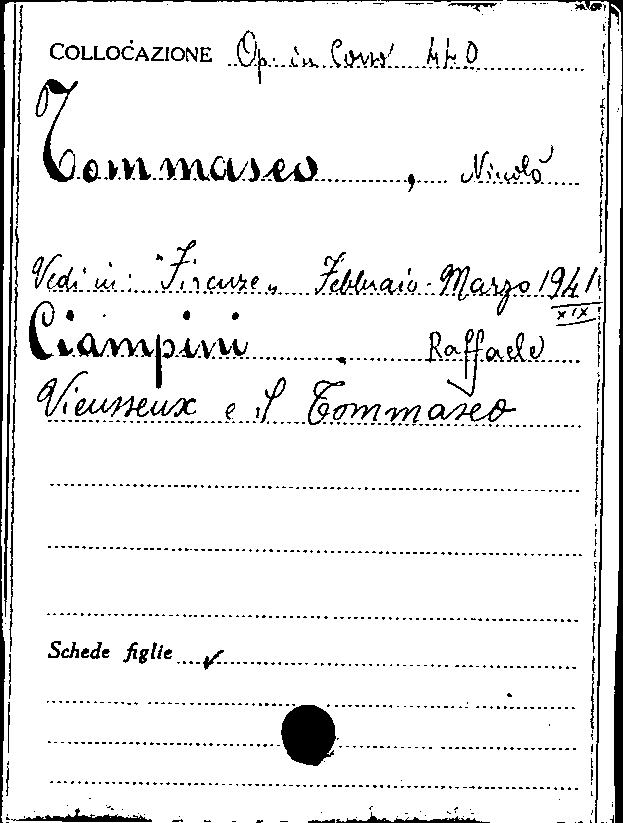 COLLOCAZIONE Op. in Corso 440
Tommaseo , Nicolò
Vedi in: "Firenze„ Febbraio-Marzo 1941
XIX
Ciampini . Raffaele
Vieusseux e il Tommaseo
Schede figlie ✓